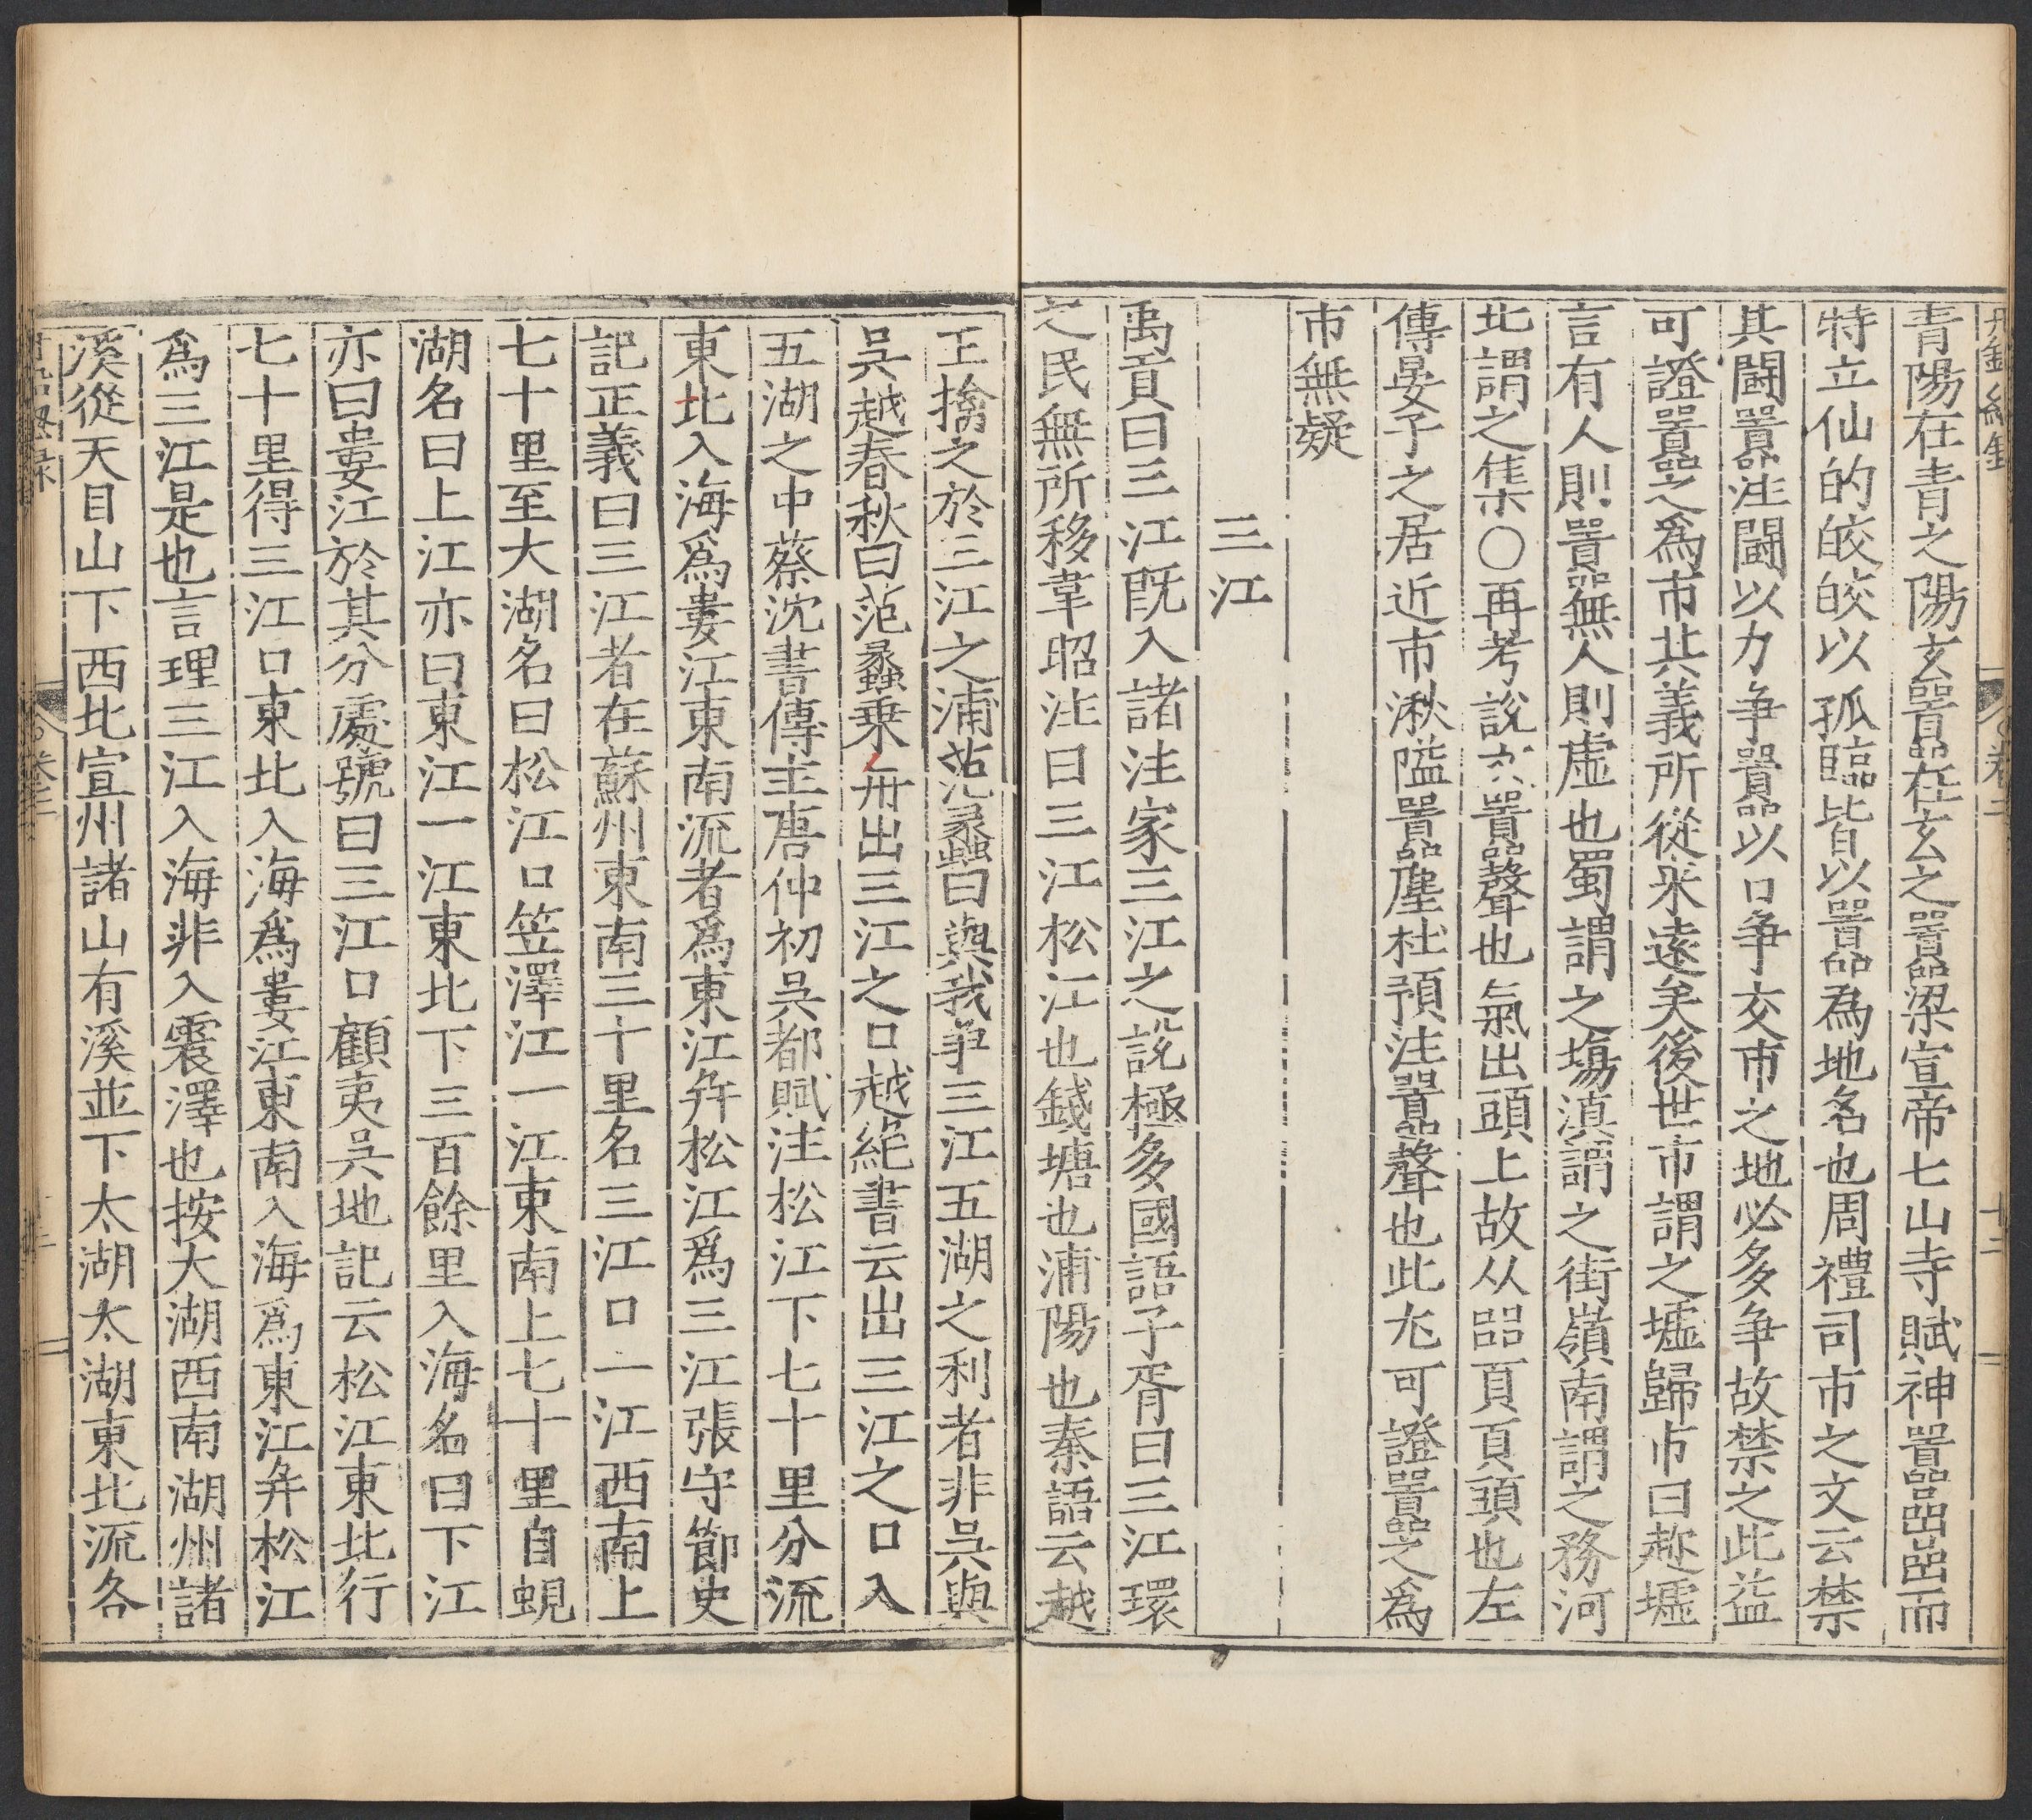 青陽在青之陽玄囂在玄之囂梁宣帝七山寺賦神囂嵒嵒而
特立仙的皎皎以孤臨皆以囂為地名也周禮司市之文云禁
其鬪囂注鬪以力争囂以口争交市之地必多争故禁之此益
可證囂之爲市其義所從来遠矣後世市謂之墟歸市曰趂墟
言有人則囂無人則虛也蜀謂之塲滇謂之街嶺南謂之務河
北謂之集〇再考說文囂聲也氣出頭上故从㗊頁頁頭也左
傳晏子之居近市湫隘囂塵杜預注囂聲也此尤可證囂之爲
市無疑
三江
禹貢曰三江既入諸注家三江之説極多國語子胥曰三江環
之民無所移韋昭注曰三江松江也錢塘也浦陽也秦語云越
王擒之於三江之浦范蠡曰與我争三江五湖之利者非吳與
吳越春秋曰范蠡乗舟出三江之口越絶書云出三江之口入
五湖之中蔡沈書傳主唐仲初吳都賦注松江下七十里分流
東北入海爲婁江東南流者爲東江并松江爲三江張守節史
記正義曰三江者在蘇州東南三十里名三江口一江西南上
七十里至大湖名曰松江口笠澤江一江東南上七十里自蜆
湖名曰上江亦曰東江一江東北下三百餘里入海名曰下江
亦曰婁江於其分處號曰三江口顧夷吳地記云松江東北行
七十里得三江口東北入海爲婁江東南入海爲東江并松江
爲三江是也言理三江入海非入震澤也按大湖西南湖州諸
溪從天目山下西北宣州諸山有溪並下太湖太湖東北流各